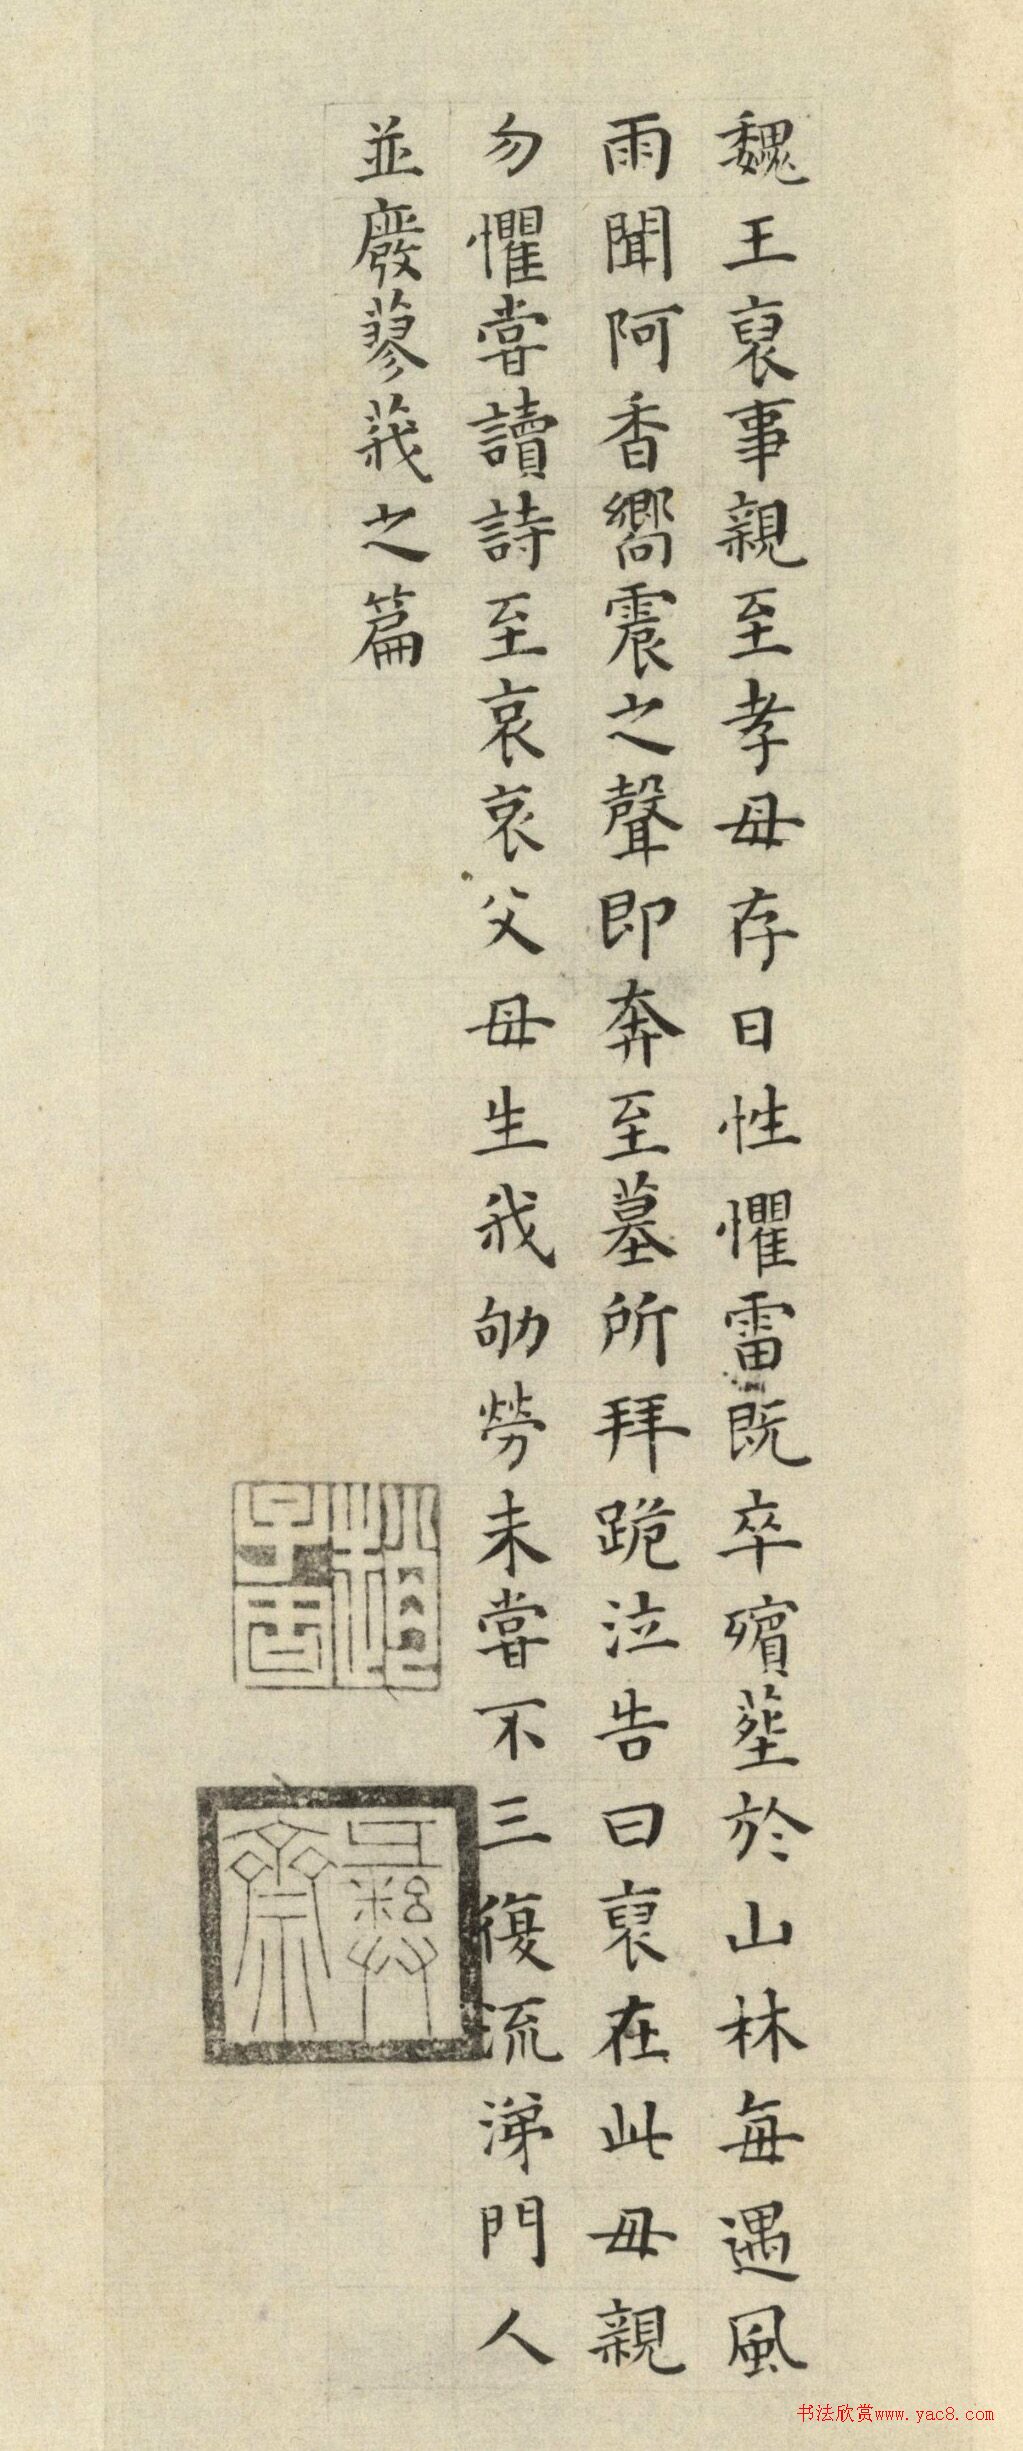 魏王裒事親至孝母存日性懼雷既卒殯葬於山林每遇風
雨聞阿香嚮震之聲即奔至墓所拜跪泣告曰裒在此母親
勿懼嘗讀詩至哀哀父母生我劬勞未嘗不三復流涕門人
並廢蓼莪之篇
書法欣赏www.yac8.com